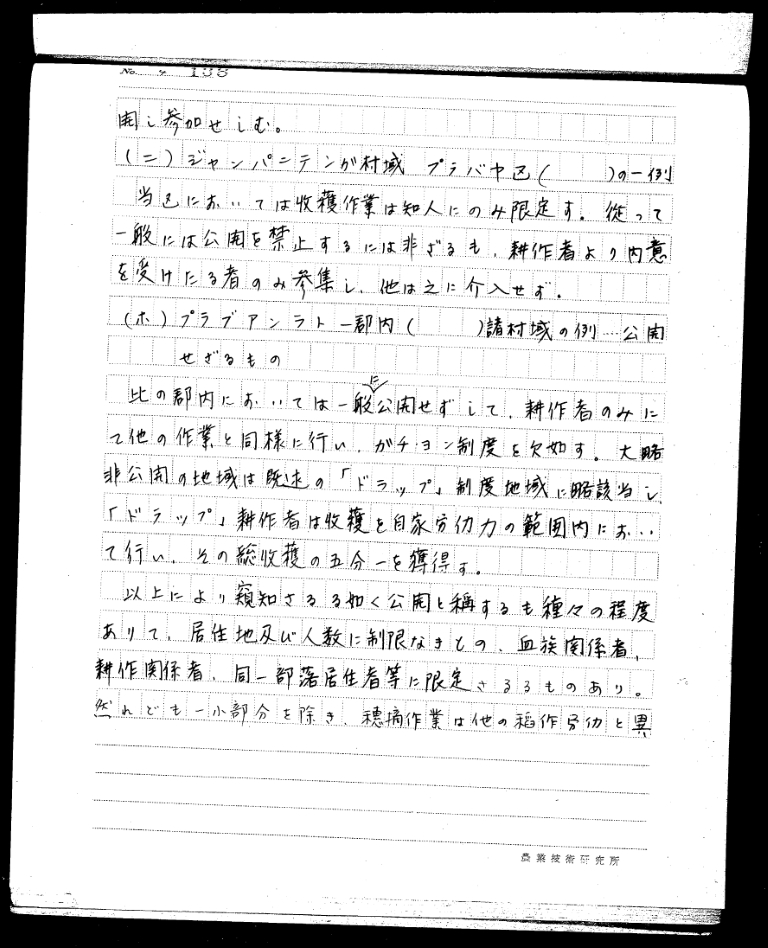 No. 138
開し参加せしむ。
(ニ)ジャンパニテンガ村域 プラバヤ区( )の一例
当区においては收穫作業は知人にのみ限定す。從って
一般には公開を禁止するには非ざるも、耕作者より内意
を受けたる者のみ参集し、他は之に介入せず。
(ホ)プラブアンラト一郡内( )諸村域の例…公開
せざるもの
此の郡内においては一般に公開せずして、耕作者のみに
て他の作業と同様に行い、ガチョン制度を欠如す。大略
非公開の地域は既述の「ドラップ」制度地域に略該当し、
「ドラップ」耕作者は收穫を自家労仂力の範囲内におい
て行い、その総收穫の五分一を獲得す。
以上により窺知さるる如く公開と稱するも種々の程度
ありて、居住地及び人数に制限なきもの、血族関係者、
耕作関係者、同一部落居住者等に限定さるるものあり。
然れども一小部分を除き、穂摘作業は他の稻作労仂と異
農業技術研究所